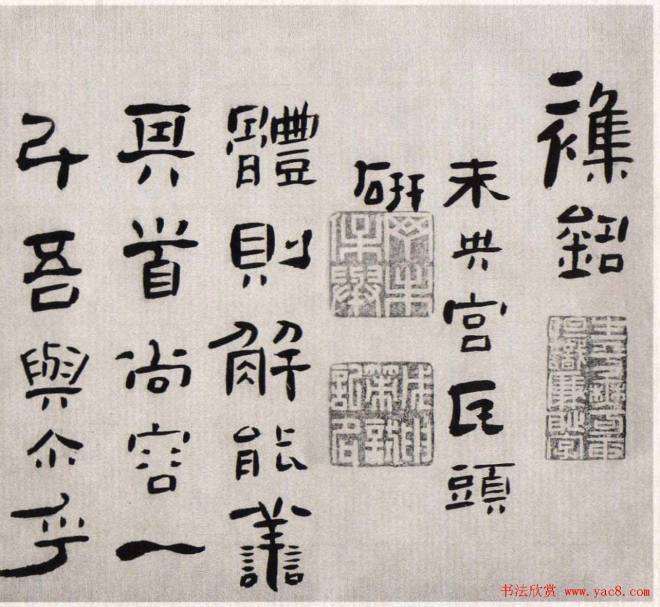 襍銘
未央宮瓦頭
硏
體則解能譱
其首尚容一
斗吾與尒乎
书法欣赏 www.yac8.com